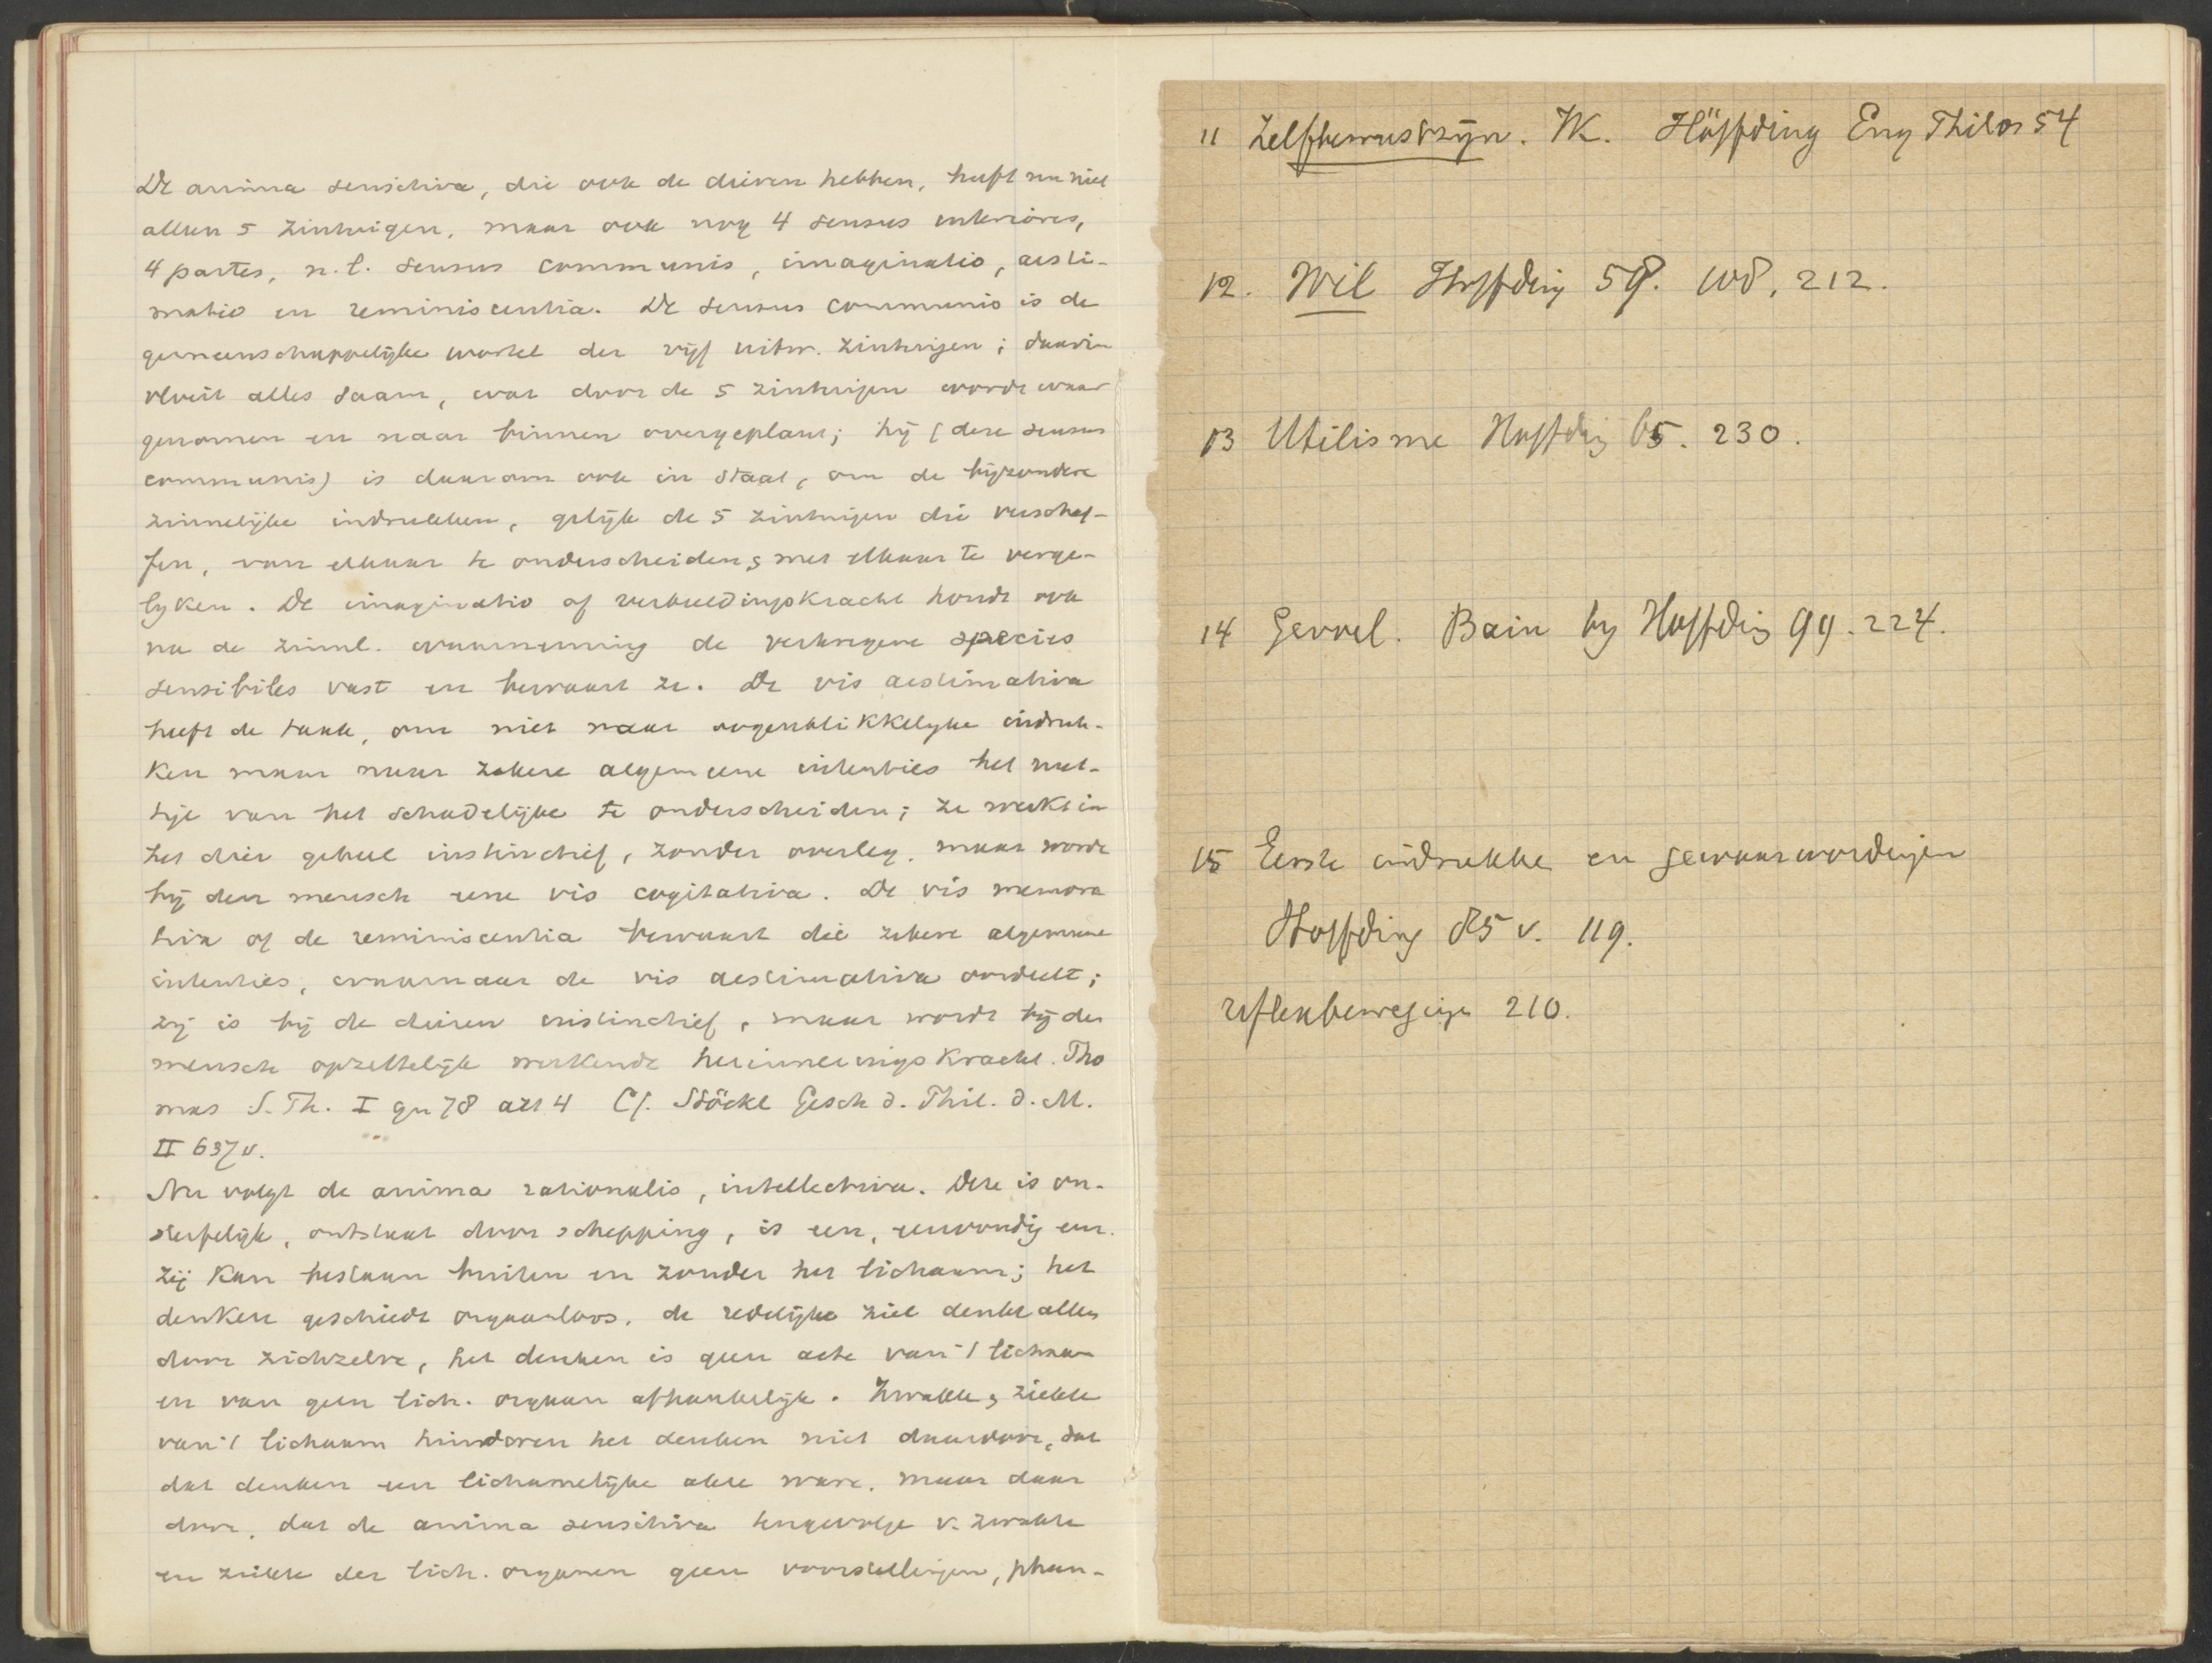 De anima sensitiva, die ook de dieren hebben, heeft nu niet
alleen 5 zintuigen, maar ook nog 4 sensus interiores,
4 partes, n.l. sensus communis, imaginatio, aesti-
matio en reminiscentia. De sensus communis is de
gemeenschappelijke wortel der vijf uitw. zintuigen; daarin
vloeit alles saam, wat door de 5 zintuigen wordt waar
genomen en naar binnen overgeplant; hij (deze sensus
communis) is daarom ook in staat, om de bijzondere
zinnelijke indrukken, gelijk de 5 zintuigen die verschaf-
fen, van elkaar te onderscheiden & met elkaar te verge-
lyken. De imaginatio of verbeeldingskracht houdt ook
na de zinnl. waarneming de verkregene species
sensibiles vast en bewaart ze. De vis aestimativa
heeft de taak, om niet naar oogenblikkelyke indruk-
ken maar naar zekere algemeene intenties het nut-
tige van het schadelijke te onderscheiden; ze werkt in
het dier geheel instinctief, zonder overleg, maar wordt
bij den mensch eene vis cogitativa. De vis memora
tiva of de reminiscentia bewaart die zekere algemeene
intenties, waarnaar de vis aestimativa oordeelt;
zij is bij de dieren instinctief, maar wordt bij den
mensch opzettelijk werkende herinneringskracht. Tho
mas S. Th. I qu 78 art 4 Cf. Stöckl Gesch d. Phil. d. M.
II 637 v.
Nu volgt de anima rationalis, intellectiva. Deze is on-
sterfelijk, ontstaat door schepping, is een, eenvoudig enz.
Zij kan bestaan buiten en zonder het lichaam; het
denken geschiedt orgaanloos, de redelijke ziel denkt alles
door zichzelve, het denken is geen acte van 't lichaam
en van geen lich. orgaan afhankelijk. Zwakte & ziekte
van 't lichaam hinderen het denken niet daardoor, dat
dat denken een lichamelijke akte ware, maar daar
door, dat de anima sensitiva tengevolge v. zwakte
en ziekte der lich. organen geen voorstellingen, phan-
11 Zelfbewustzijn. W. Höffding Eng Philos 54
12. Wil Höffding 59. 108, 212.
13 Utilisme Höffding 65. 230.
14 Gevoel. Bain by Höffding 99. 224.
15 Eerste indrukken en gewaarwordingen
Höffding 85 v. 119.
reflexbewegingen 210.